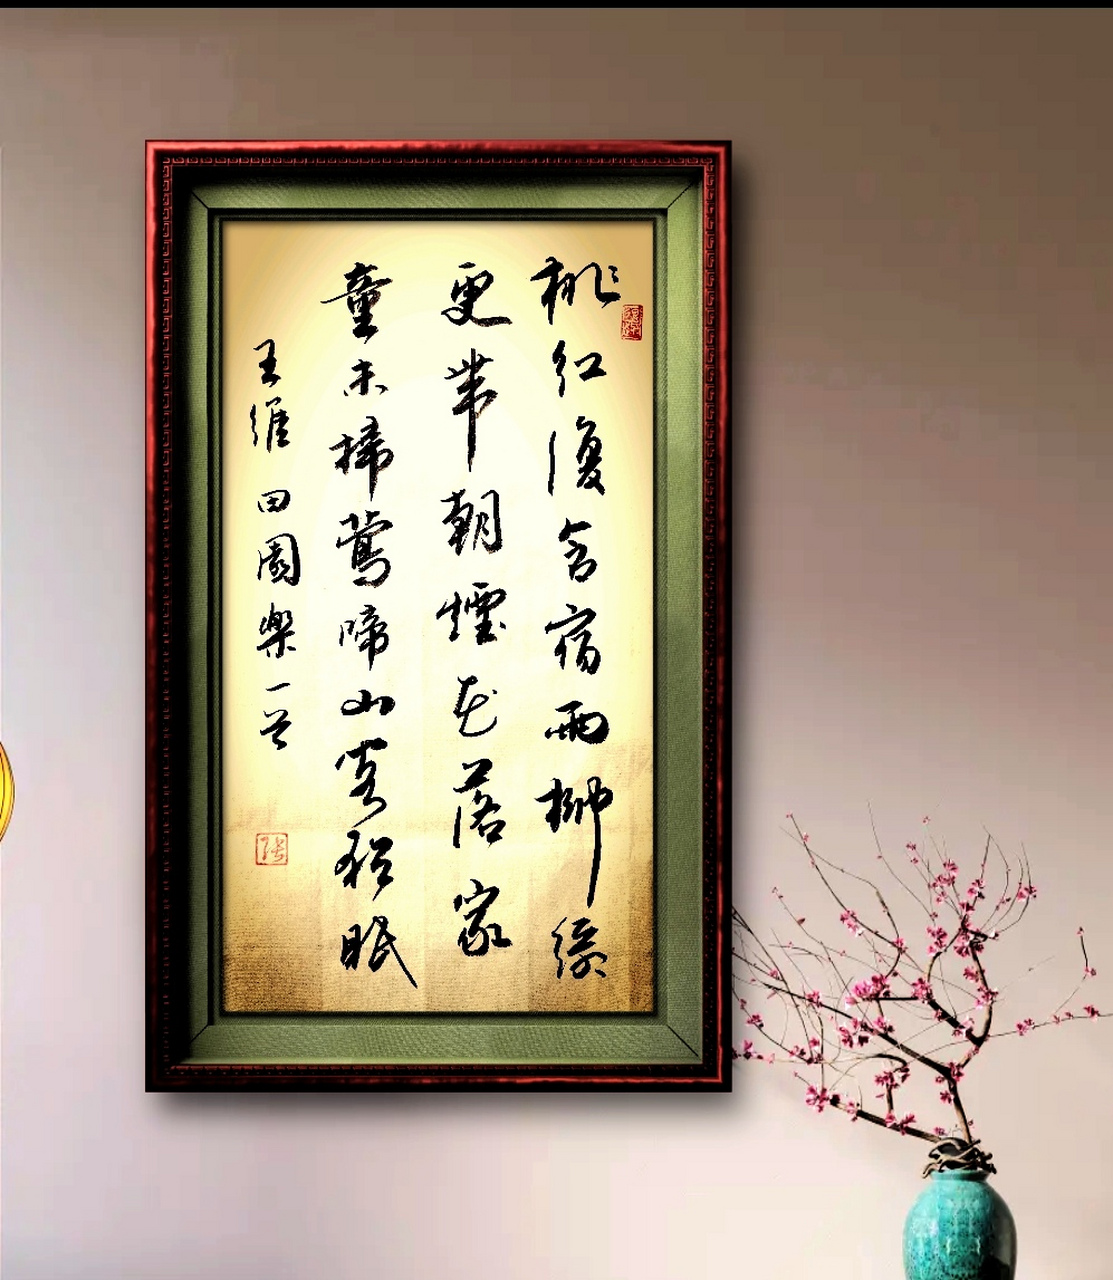 桃红復含宿雨柳绿
更带朝煙花落家
童未掃鶯啼山客猶眠
王維田園樂一首
张